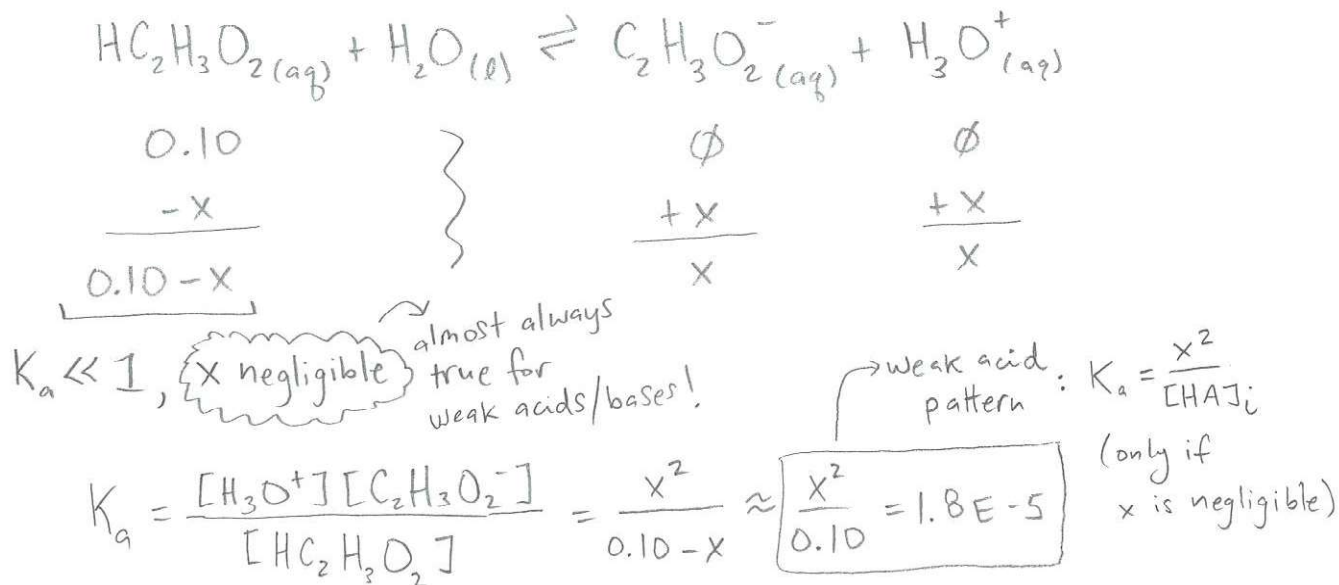 HC₂H₃O₂(aq) + H₂O(l) ⇌ C₂H₃O₂⁻(aq) + H₃O⁺(aq)
0.10 ∅ ∅
-x +x +x
0.10-x x x
Kₐ << 1, x negligible → almost always
true for
weak acids/bases!
→ weak acid
pattern : Kₐ = x²/[HA]ᵢ
(only if
x is negligible)
Kₐ = [H₃O⁺][C₂H₃O₂⁻]/[HC₂H₃O₂] = x²/(0.10-x) ≈ x²/0.10 = 1.8E-5